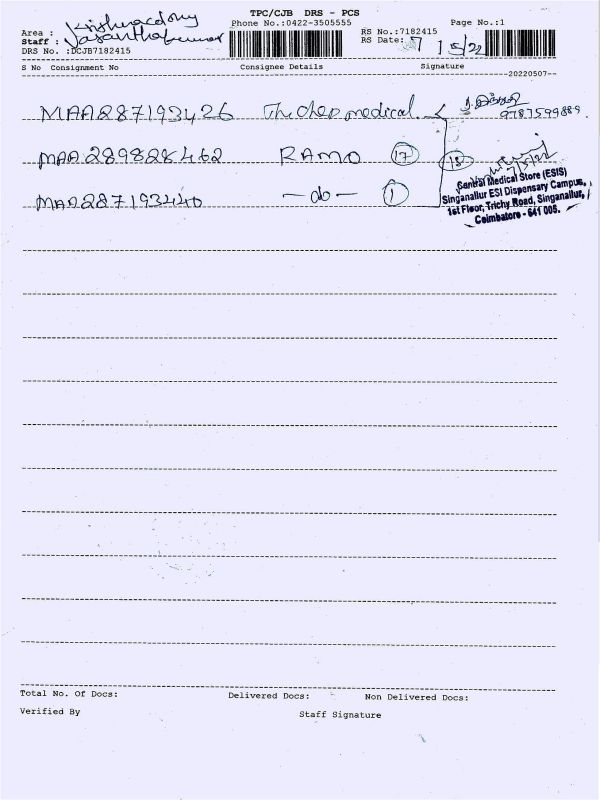 TPC/CJB DRS - PCS
Phone No.:0422-3505555
Page No.:1
Area : Krishnacolony
Staff : Vasanthakumar
DRS No. :DCJB7182415
RS No.:7182415
RS Date: 7/5/22
S No Consignment No Consignee Details Signature
--20220507--
MAA287193426 medical.
9787599889
MAA289828462 RAMO 17 18
MAA287193440 -do- 1
Central Medical Store (ESIS)
Singanallur ESI Dispensary Campus,
1st Floor, Trichy Road, Singanallur,
Coimbatore - 641 005.
Total No. Of Docs: Delivered Docs: Non Delivered Docs:
Verified By Staff Signature